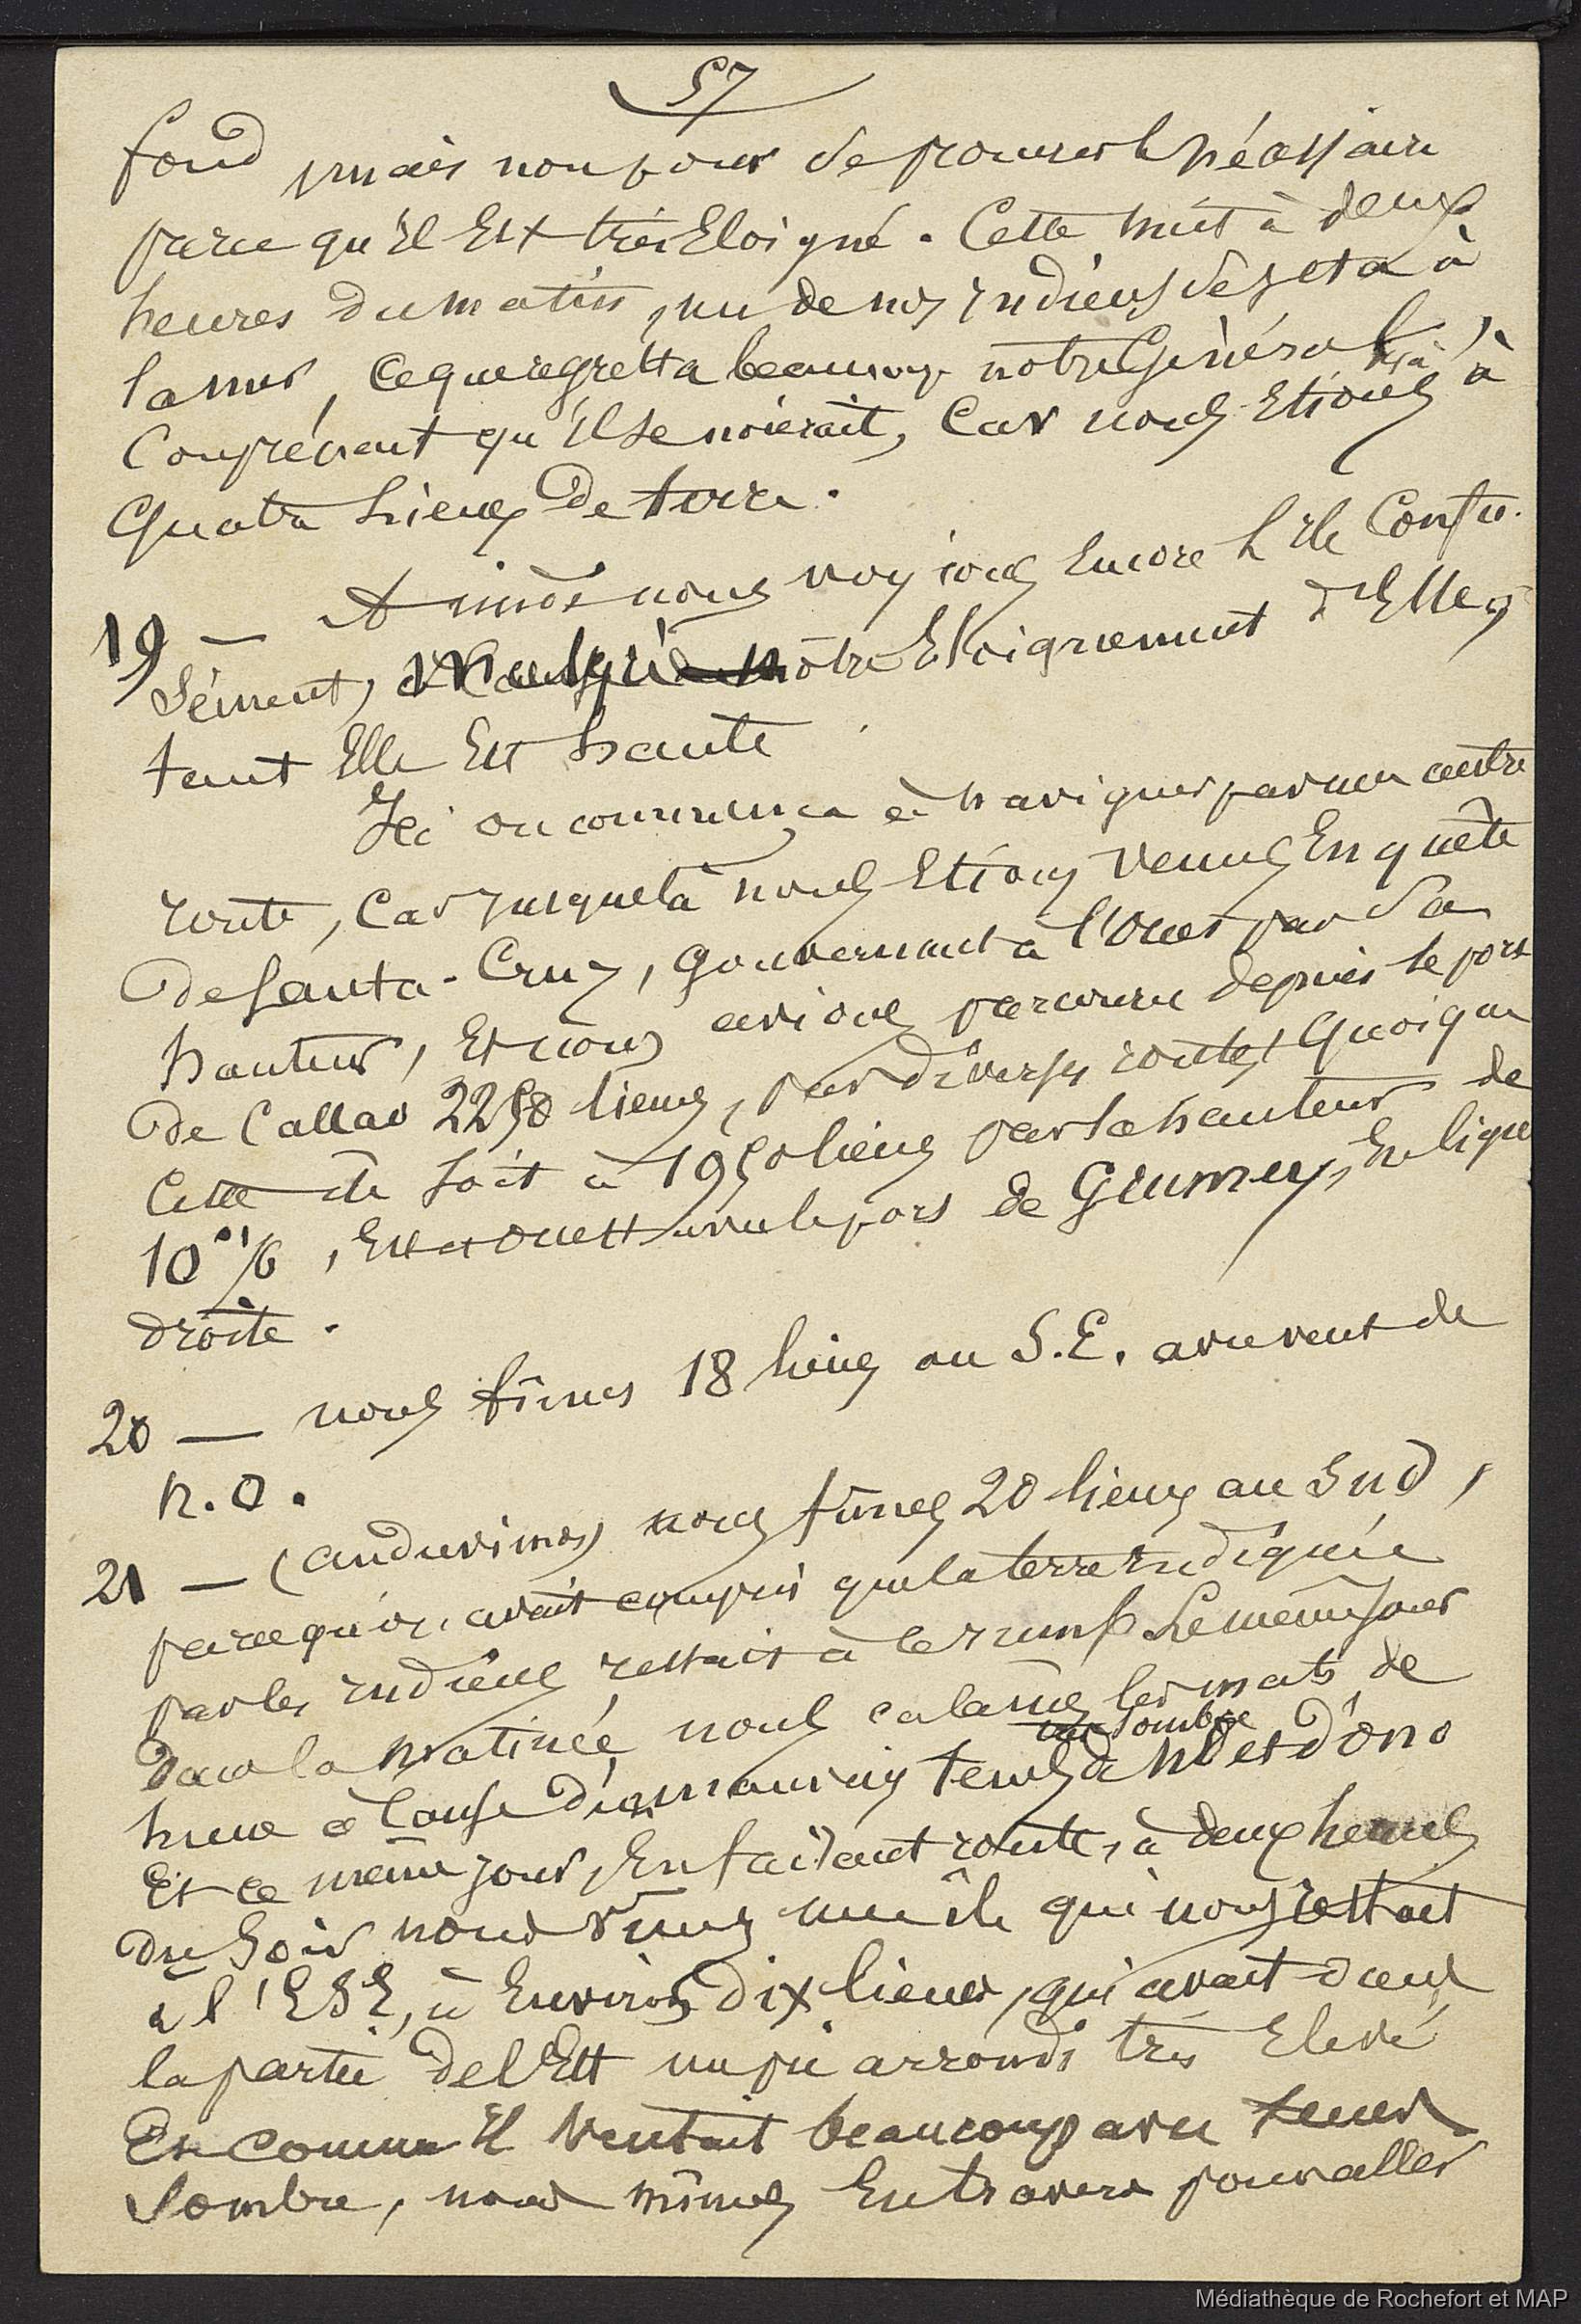 57
fond mais non pour se procurer le nécessaire
parce qu'il Est très Eloigné. Cette nuit à deux
heures du matin, un de nos indiens se jeta à
la mer, ce que regretta beaucoup notre Général,
Comprenant qu'il se noierait, Car nous Etions déjà à
Quatre Lieues De terre.
19 — Ainsi nous voyions Encore L'île Confu-
sément, malgré notre Eloignement d'Elle,
tant Elle Est haute
Ici on commença à naviguer par une autre
route, Car jusque là nous Etions Venus En quête
De Santa-Cruz, gouvernant à l'Ouest par sa
hauteur, Et nous avions parcouru depuis le port
De Callao 2250 lieues, par diverses routes, Quoique
Cette île soit à 1950 lieues par la hauteur de
10° 1/6, Est et Ouest avec le port de Grumey, En ligne
droite.
20 — nous fîmes 18 lieues au S.E. avec vent de
N.O.
21 — (anduvimos) nous fîmes 20 lieues au Sud,
parce qu'on avait compris que la terre indiquée
par les indiens restait à ce rumb. Le même jour
Dans la matinée nous calâmes les mats de
hune à Cause d'un mauvais temps sombre de NO et d'ONO
Et ce même jour, En faisant route, à deux heures
du Soir nous Vîmes une île qui nous restait
à l'ESE, à Environ dix lieues, qui avait dans
la partie de l'Est un pic arrondi très Elevé
Et comme il Ventait beaucoup avec temps
Sombre, nous mîmes En travers pour aller
Médiathèque de Rochefort et MAP